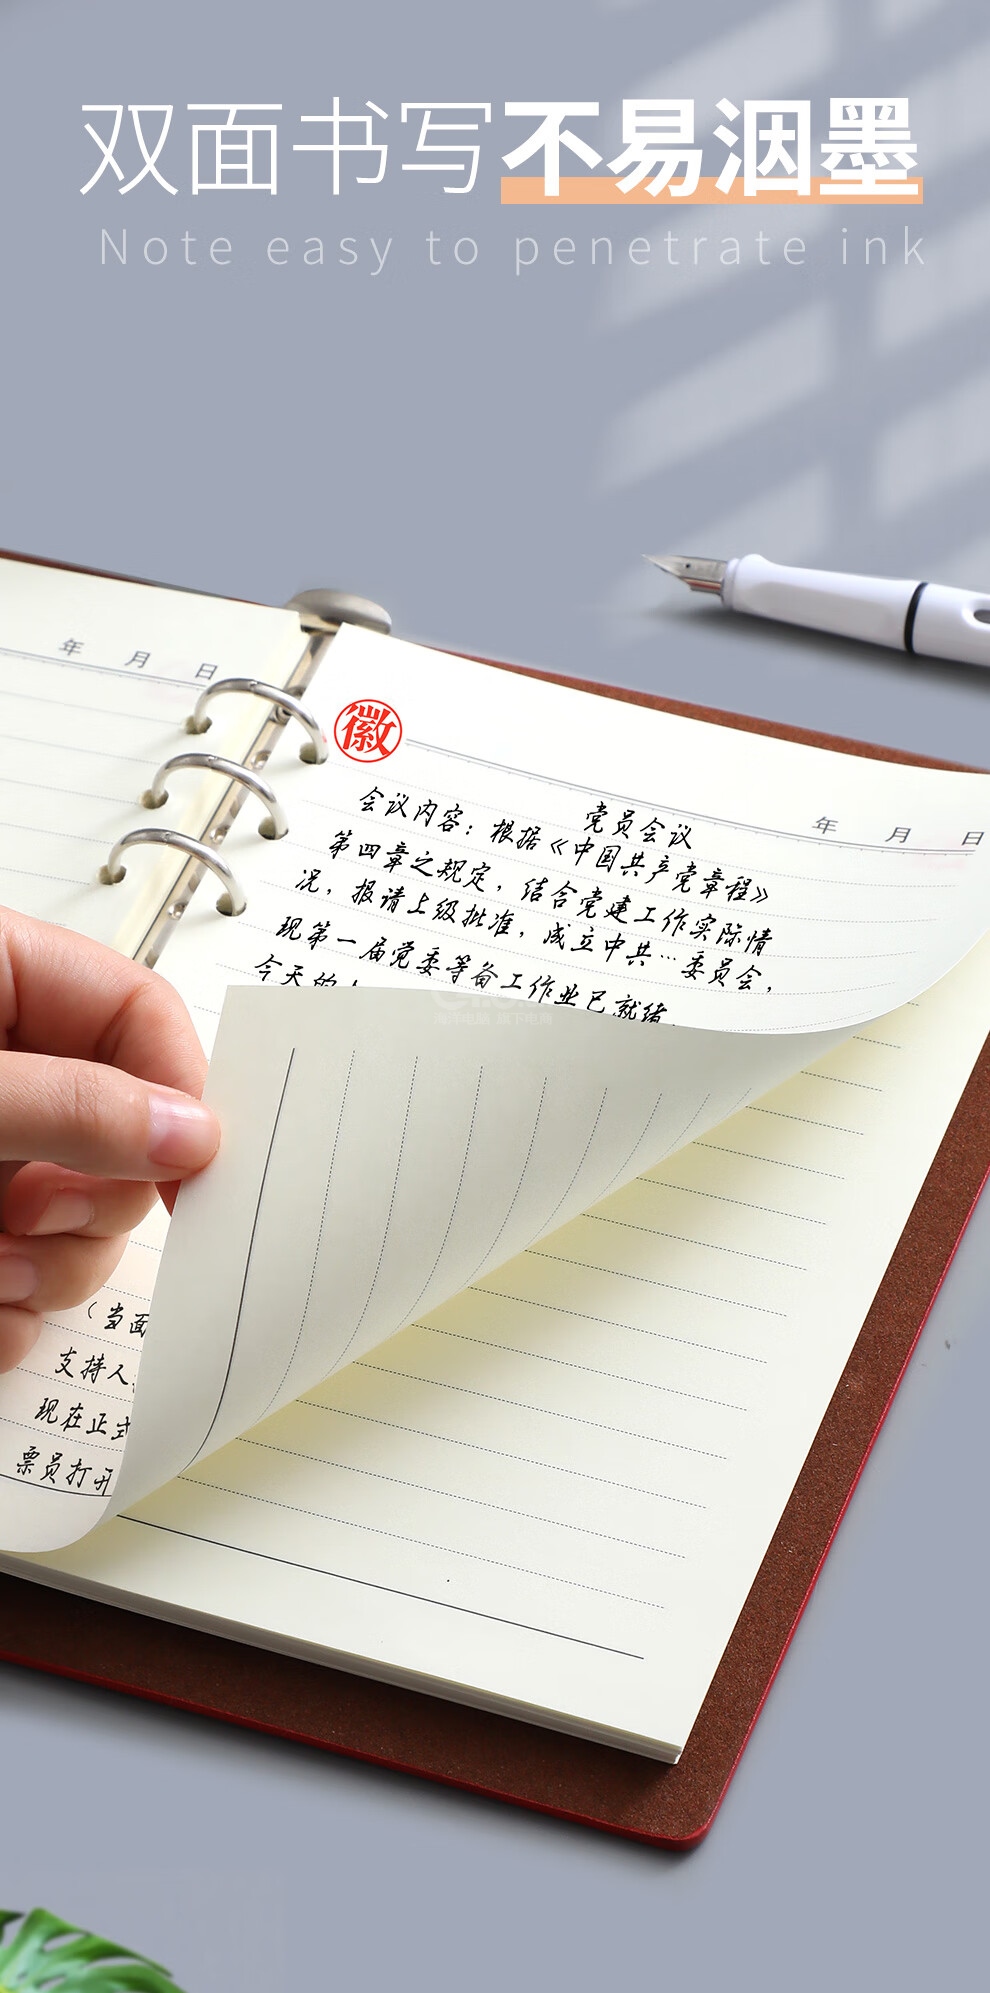 双面书写不易洇墨
Note easy to penetrate ink
年 月 日
徽
年 月 日
党员会议
会议内容：根据《中国共产党章程》
第四章之规定，结合党建工作实际情
况，报请上级批准，成立中共…委员会，
现第一届党委等备工作业已就绪
今天的
（当面
支持人
现在正式
票员打开